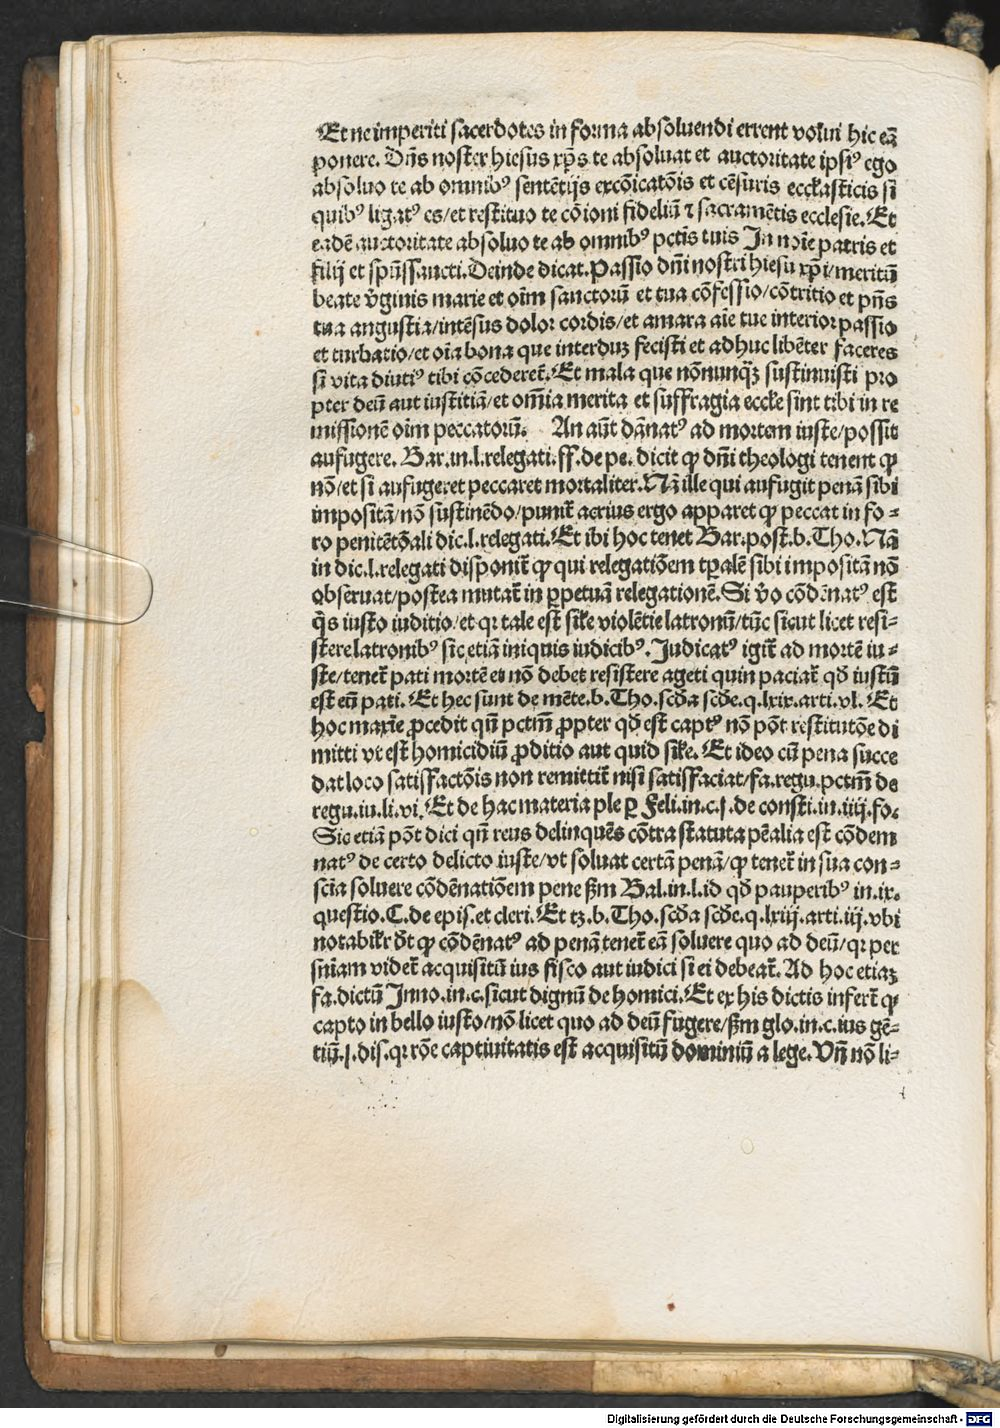 Et ne imperiti sacerdotes in forma absoluendi errent volui hic eā
ponere. Dn̄s noster hiesus xp̄s te absoluat et auctoritate ipsiꝰ ego
absoluo te ab omnibꝰ sentētijs excōicatōis et cēsuris eccl̓asticis si
quibꝰ ligatꝰ es/et restituo te cōioni fideliū ⁊ sacramētis ecclesie. Et
eadē auctoritate absoluo te ab omnibꝰ pctīs tuis In noīe patris et
filij et spūssancti. Deinde dicat. Passio dn̄i nostri hiesu xp̄i/meritū
beate v̓ginis marie et oīm sanctorū et tua cōfessio/cōtritio et pn̄s
tua angustia/intēsus dolor cordis/et amara aīe tue interior passio
et turbatio/et oīa bona que interduꝫ fecisti et adhuc libēter faceres
si vita diutiꝰ tibi cōcederet̄. Et mala que nōnunqꝫ̄ sustinuisti pro
pter deū aut iustitiā/et om̄ia merita et suffragia eccl̓e sint tibi in re
missionē oīm peccatorū. An aūt dānatꝰ ad mortem iuste/possit
aufugere. Bar. in. l. relegati. ff. de pe. dicit ꝙ dn̄i theologi tenent ꝙ
nō/et si aufugeret peccaret mortaliter. Nā ille qui aufugit penā sibi
impositā/nō sustinēdo/punit̄ acrius ergo apparet ꝙ peccat in fo-
ro penitētōali dic. l. relegati. Et ibi hoc tenet Bar. post. b. Tho. Nā
in dic. l. relegati disponit̄ ꝙ qui relegatiōem tꝑalē sibi impositā nō
obseruat/postea mutat̄ in ꝑpetuā relegationē. Si v̓o cōdēnatꝰ est
q̄s iusto iuditio/et qr tale est sil̓e violētie latronū/tūc sicut licet resi-
stere latronibꝰ sic etiā iniquis iudicibꝰ. Judicatꝰ igit̄ ad mortē iu-
ste/tenet̄ pati mortē et nō debet resistere ageti quin paciat̄ qđ iustū
est eū pati. Et hec sunt de mēte. b. Tho. scđa scđe. q. lxix. arti. vl. Et
hoc maxīe ꝓcedit qn̄ pctm̄ ꝓpter qđ est captꝰ nō pōt restitutōe di
mitti vt est homicidiū ꝓditio aut quid sil̓e. Et ideo cū pena succe
dat loco satisfactōis non remittit̄ nisi satisfaciat/fa. regu. pctm̄ de
regu. iu. li. vi. Et de hac materia ple ꝑ Feli. in. c. j. de consti. in. iiij. fo.
Sic etiā pōt dici qn̄ reus delinquēs cōtra statuta pēalia est cōdem
natꝰ de certo delicto iuste/vt soluat certā penā/ꝙ tenet̄ in sua con-
scīa soluere cōdēnatiōem pene ẜm Bal. in. l. id qđ pauperibꝰ in. ix.
questio. C. de epis. et cleri. Et tꝫ. b. Tho. scđa scđe. q. lxiij. arti. iij. vbi
notabil̓r dt̄ ꝙ cōdēnatꝰ ad penā tenet̄ eā soluere quo ad deū/qr per
sn̄iam videt̄ acquisitū ius fisco aut iudici si ei debeat̄. Ad hoc etiaꝫ
fa. dictū Inno. in. c. sicut dignū de homici. Et ex his dictis infert̄ ꝙ
capto in bello iusto/nō licet quo ad deū fugere/ẜm glo. in. c. ius gē-
tiū. j. dis. qr rōe captiuitatis est acquisitū dominiū a lege. Vn̄ nō li-
Digitalisierung gefördert durch die Deutsche Forschungsgemeinschaft - DFG